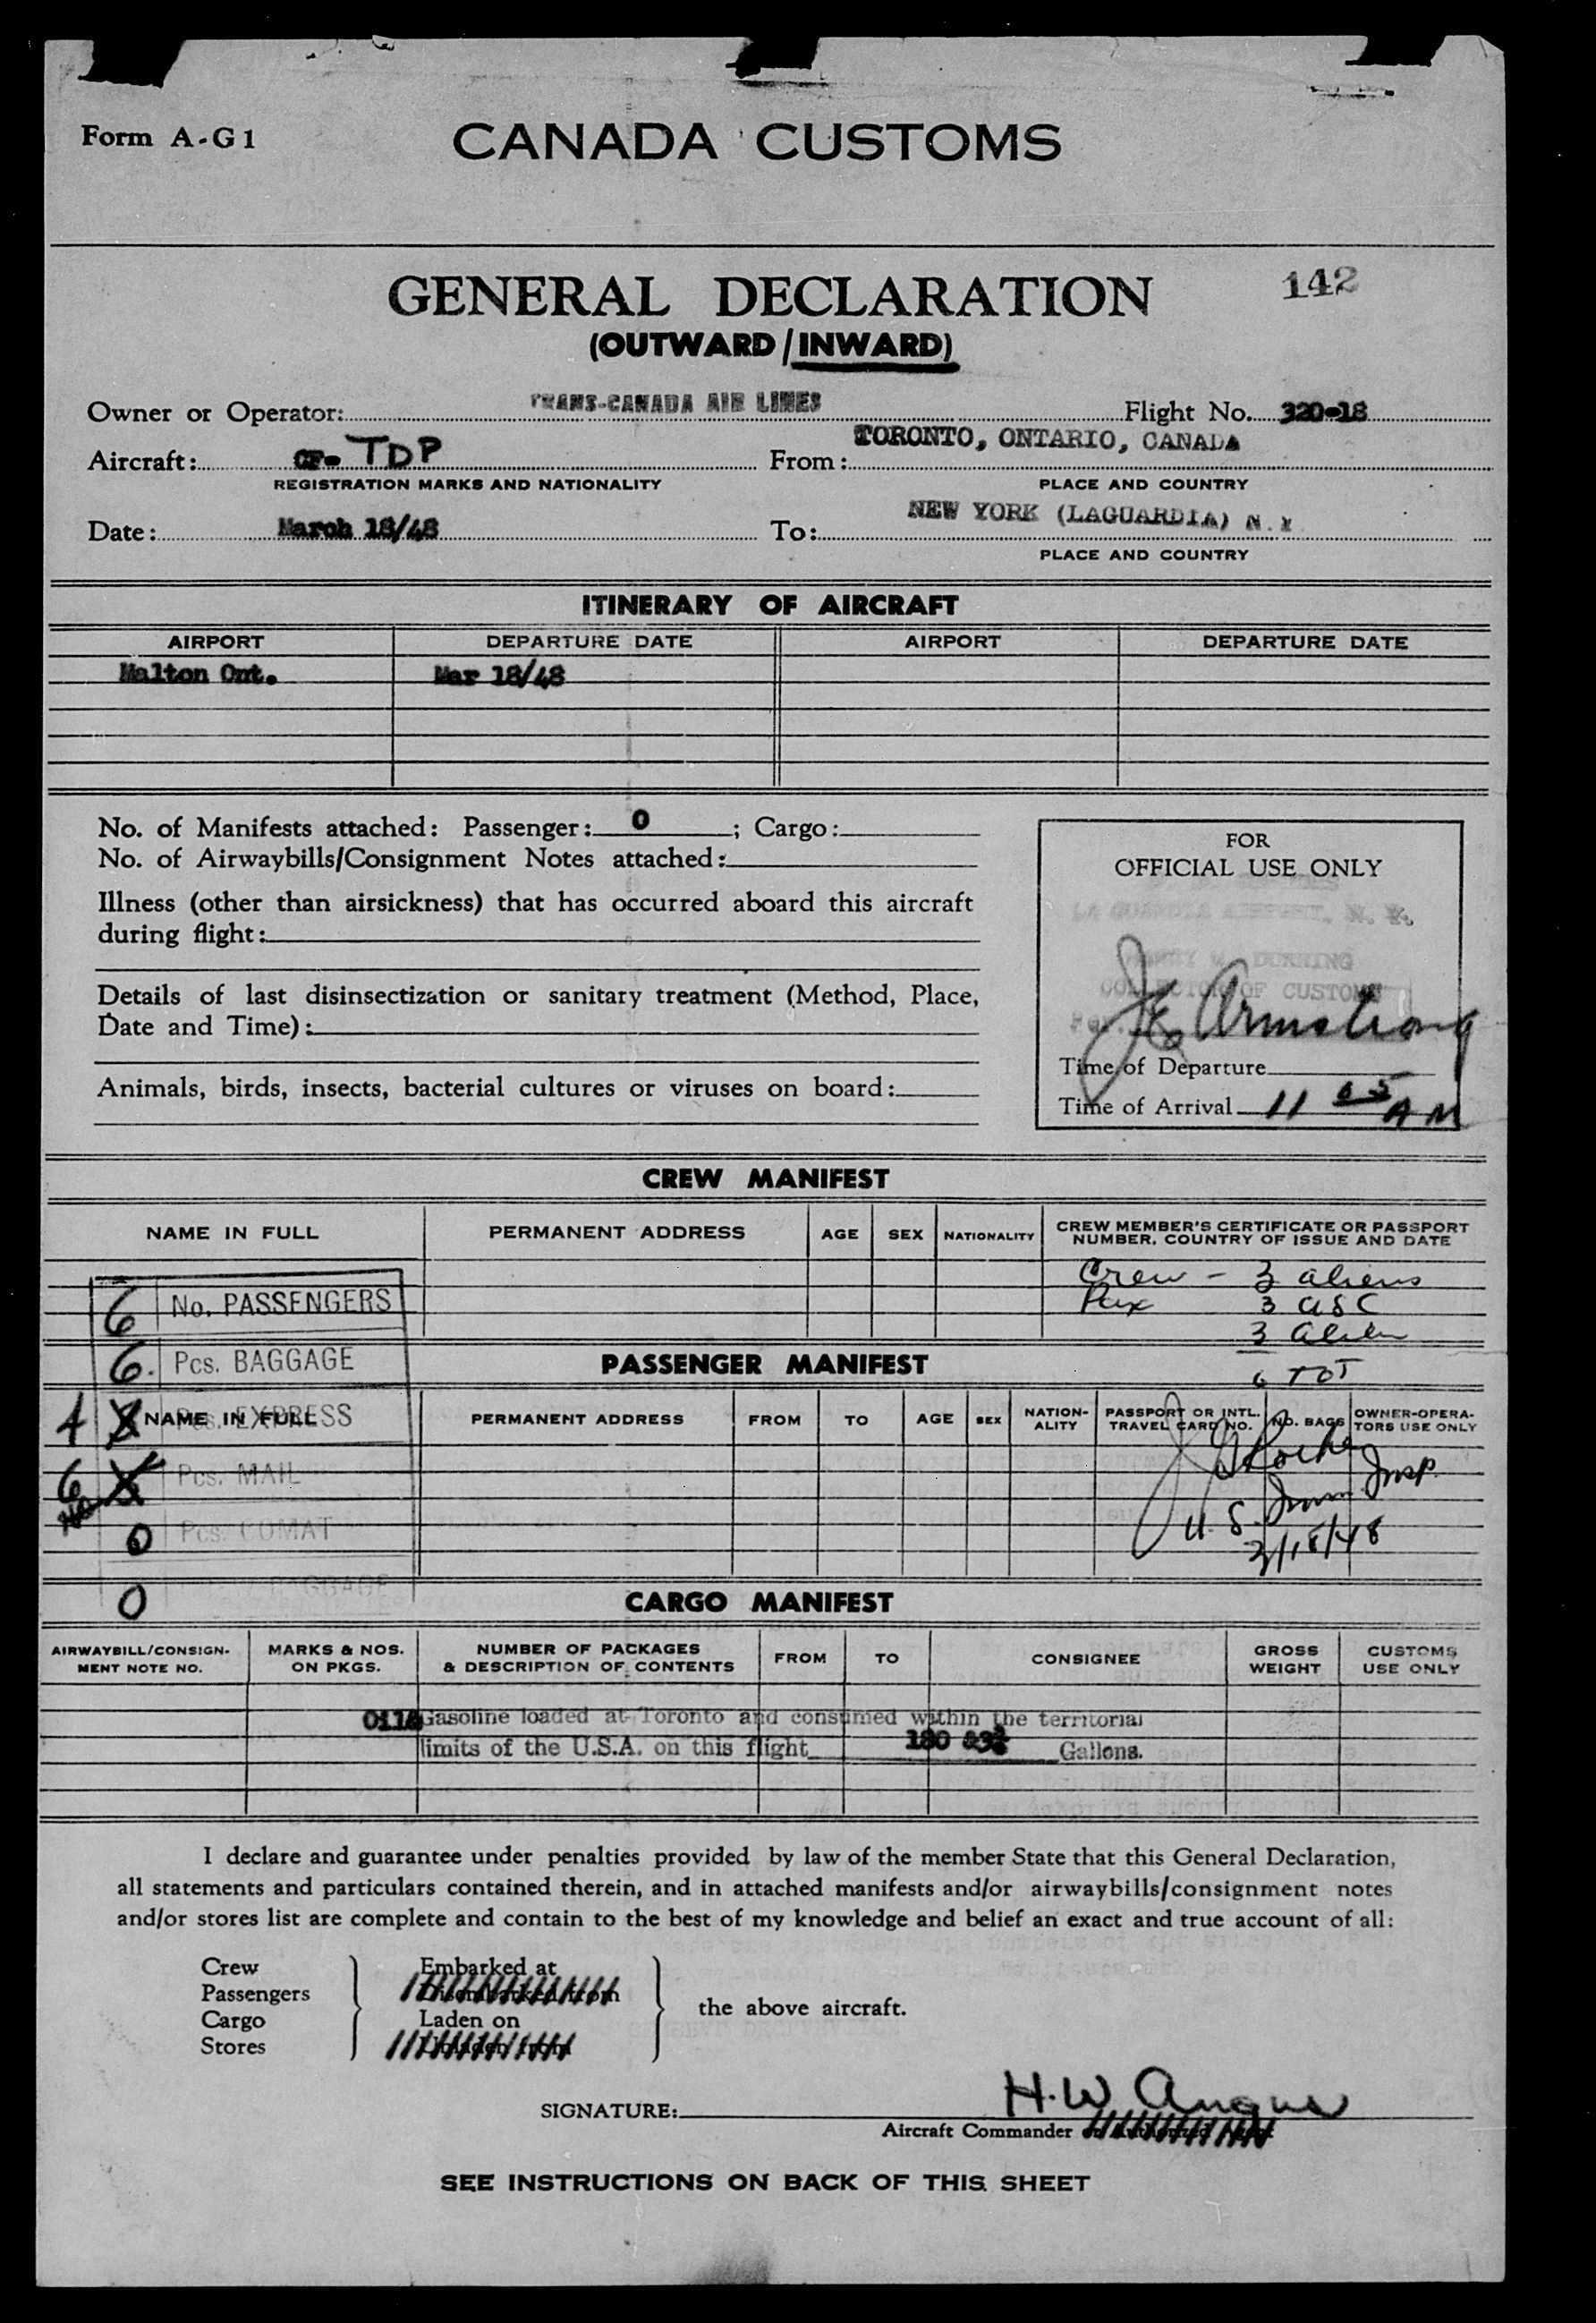 Form A-G1
CANADA CUSTOMS
GENERAL DECLARATION
142
(OUTWARD/INWARD)
Owner or Operator: TRANS-CANADA AIR LINES Flight No. 320-18
Aircraft: CF- TDP From: TORONTO, ONTARIO, CANADA
REGISTRATION MARKS AND NATIONALITY PLACE AND COUNTRY
Date: March 18/48 To: NEW YORK (LAGUARDIA) N.Y
PLACE AND COUNTRY
ITINERARY OF AIRCRAFT
AIRPORT DEPARTURE DATE AIRPORT DEPARTURE DATE
Malton Ont. Mar 18/48
No. of Manifests attached: Passenger: 0 ; Cargo:
No. of Airwaybills/Consignment Notes attached:
Illness (other than airsickness) that has occurred aboard this aircraft
during flight:
Details of last disinsectization or sanitary treatment (Method, Place,
Date and Time):
Animals, birds, insects, bacterial cultures or viruses on board:
FOR
OFFICIAL USE ONLY
LA GUARDIA AIRPORT, N. Y.
HARRY M. DURNING
COLLECTOR OF CUSTOMS
Per.
Armstrong
Time of Departure
Time of Arrival 11 05 AM
CREW MANIFEST
NAME IN FULL PERMANENT ADDRESS AGE SEX NATIONALITY CREW MEMBER'S CERTIFICATE OR PASSPORT
NUMBER, COUNTRY OF ISSUE AND DATE
Crew - 3 aliens
Pax 3 USC
3 alien
6 TOT
6 No. PASSENGERS
6. Pcs. BAGGAGE
PASSENGER MANIFEST
Pcs. EXPRESS
NAME IN FULL PERMANENT ADDRESS FROM TO AGE SEX NATION-
ALITY PASSPORT OR INTL.
TRAVEL CARD NO. NO. BAGS OWNER-OPERA-
TORS USE ONLY
6 Pcs. MAIL
0 Pcs. COMAT
0 BAGGAGE
U. S. Imm. Insp.
3/18/48
CARGO MANIFEST
AIRWAYBILL/CONSIGN-
MENT NOTE NO. MARKS & NOS.
ON PKGS. NUMBER OF PACKAGES
& DESCRIPTION OF CONTENTS FROM TO CONSIGNEE GROSS
WEIGHT CUSTOMS
USE ONLY
Gasoline loaded at Toronto and consumed within the territorial
limits of the U.S.A. on this flight 180 Gallons.
I declare and guarantee under penalties provided by law of the member State that this General Declaration,
all statements and particulars contained therein, and in attached manifests and/or airwaybills/consignment notes
and/or stores list are complete and contain to the best of my knowledge and belief an exact and true account of all:
Crew Embarked at
Passengers Disembarked from
Cargo Laden on
Stores Unladen from
the above aircraft.
SIGNATURE: H.W. Angus
Aircraft Commander or Authorized Agent
SEE INSTRUCTIONS ON BACK OF THIS SHEET